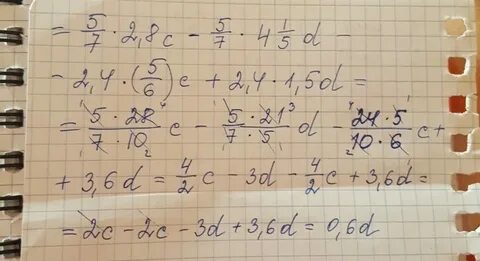 = 5/7 · 2,8c - 5/7 · 4 1/5 d -
- 2,4 · (5/6)c + 2,4 · 1,5d =
= (5 · 28⁴)/(7 · 10₂) c - (5 · 21³)/(7 · 5) d - (⁴24 · 5¹)/(₂10 · 6) c +
+ 3,6d = 4/2 c - 3d - 4/2 c + 3,6d =
= 2c - 2c - 3d + 3,6d = 0,6d